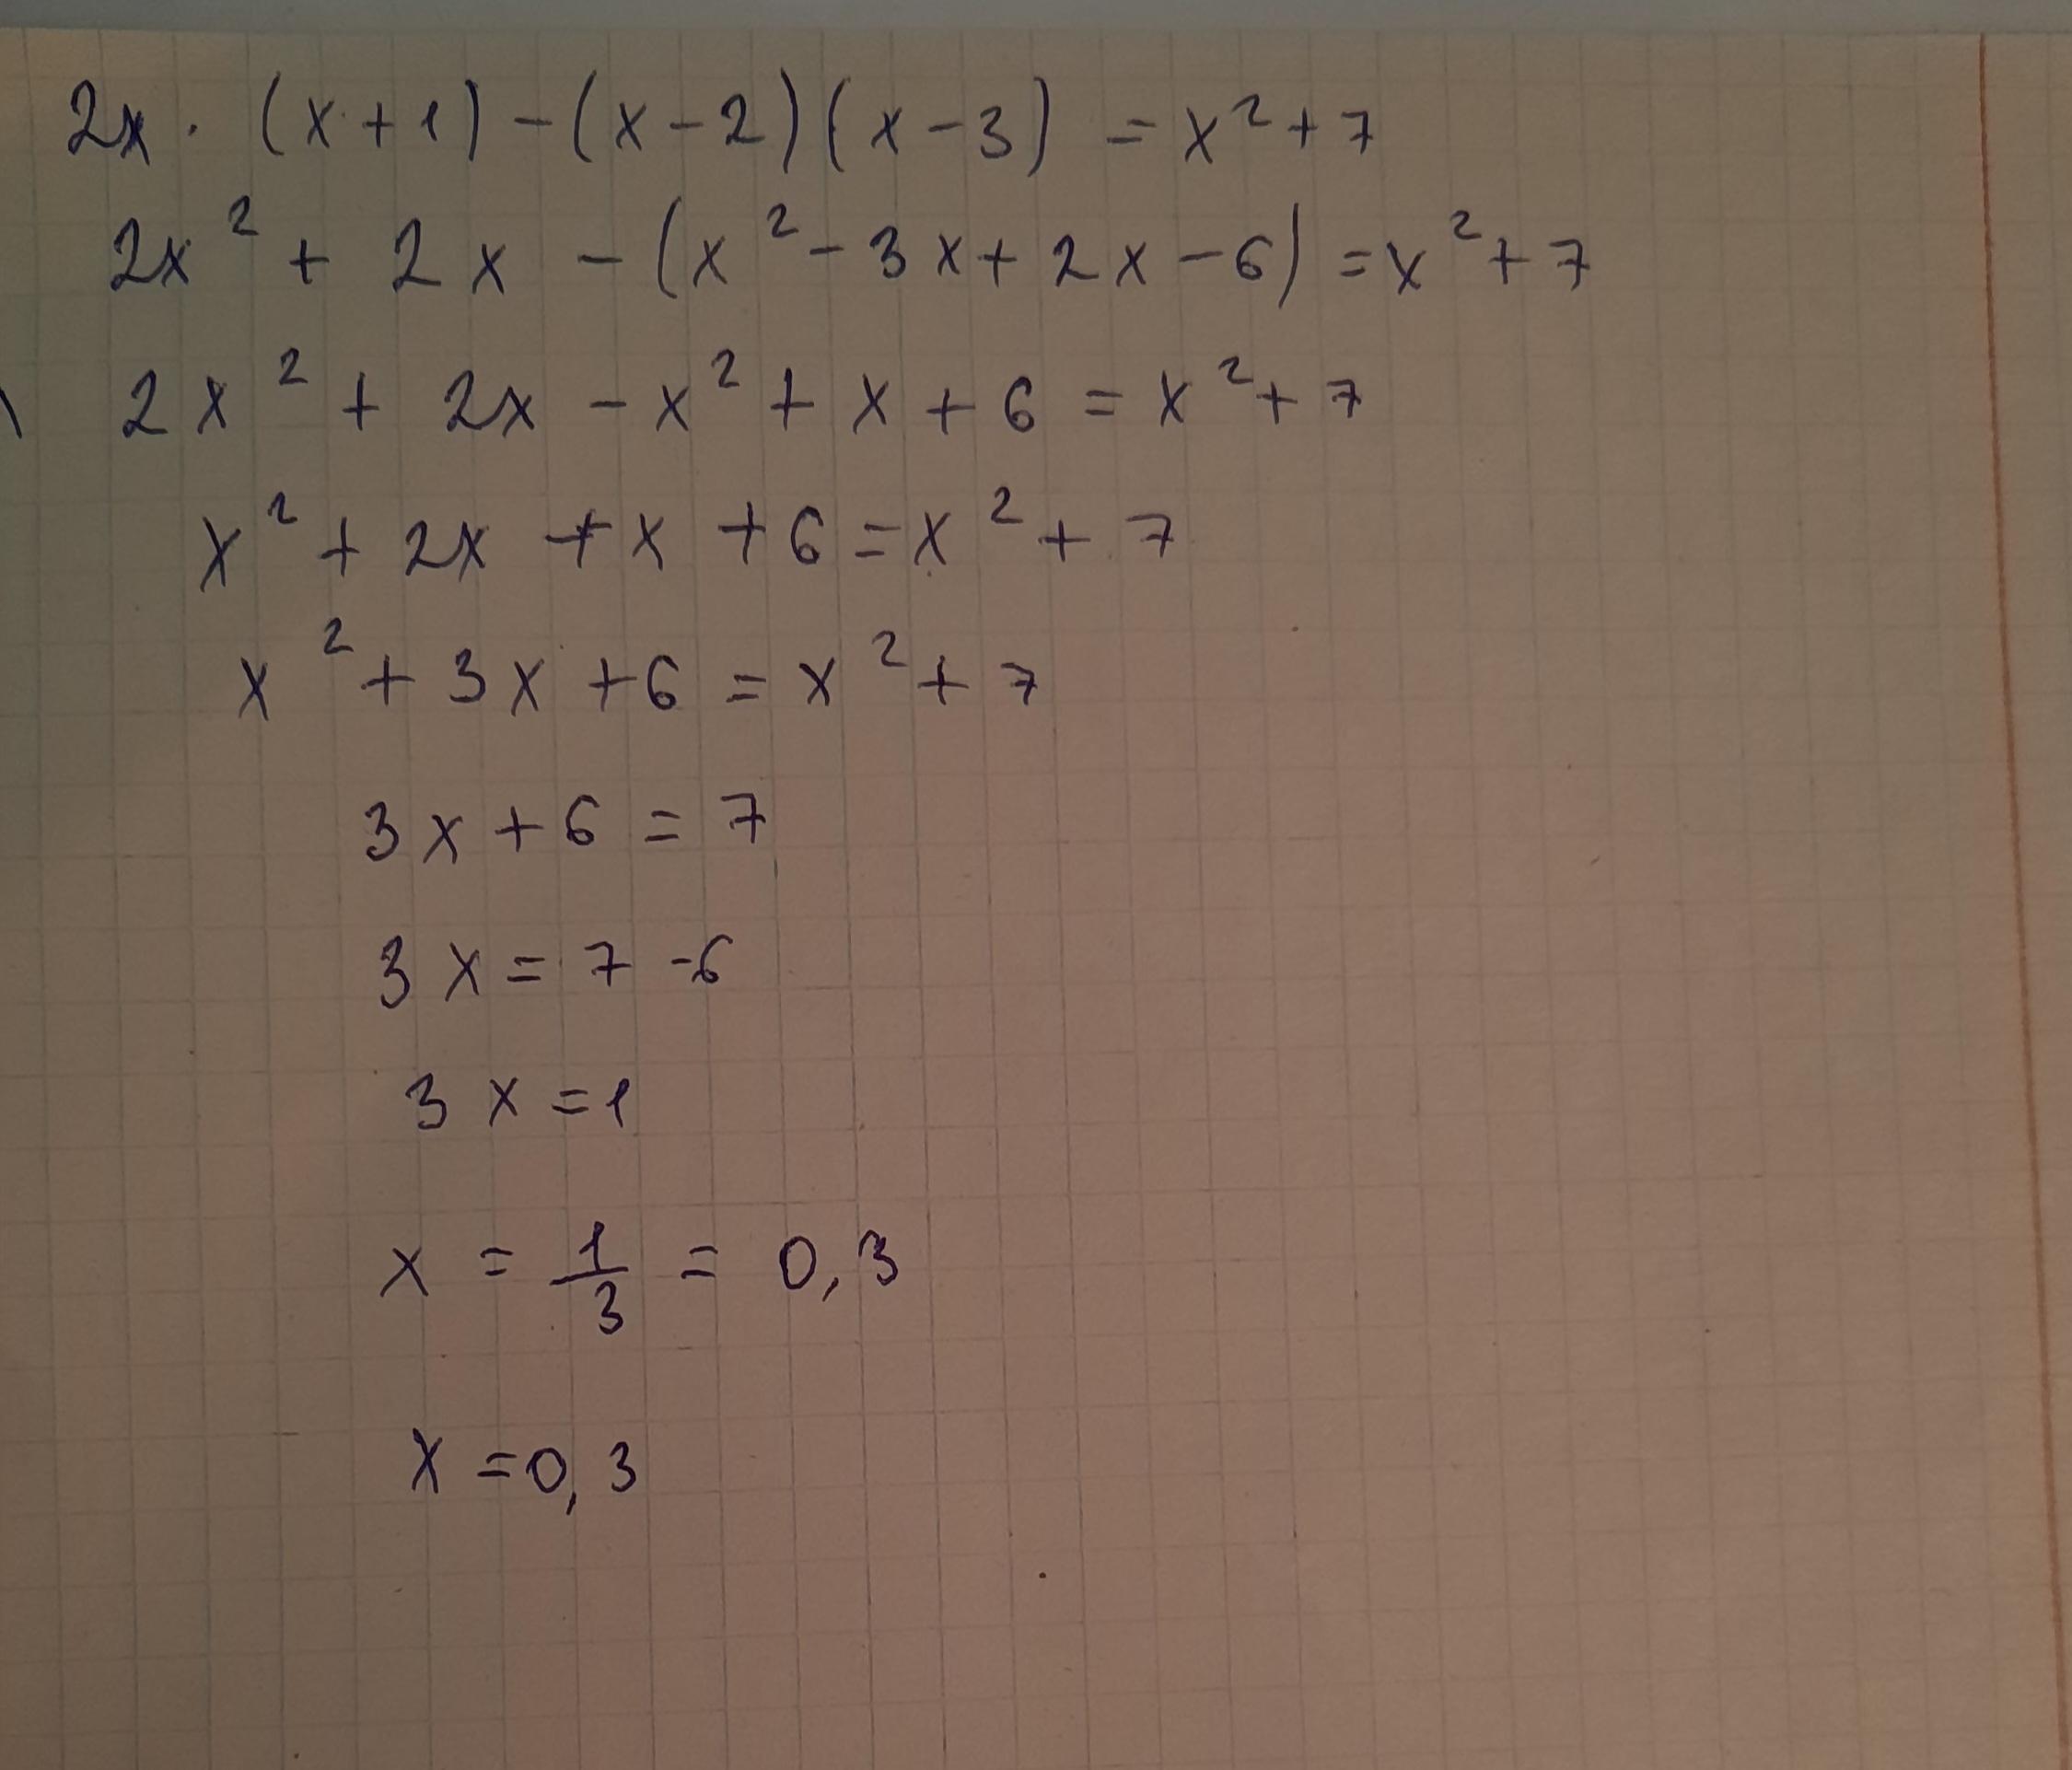 2x · (x+1) - (x-2)(x-3) = x² + 7
2x² + 2x - (x² - 3x + 2x - 6) = x² + 7
2x² + 2x - x² + x + 6 = x² + 7
x² + 2x + x + 6 = x² + 7
x² + 3x + 6 = x² + 7
3x + 6 = 7
3x = 7 - 6
3x = 1
x = 1/3 = 0,3
x = 0,3